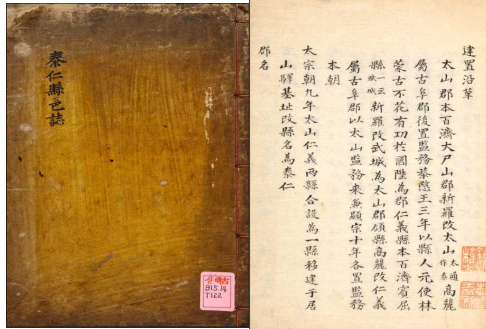 泰仁縣邑誌
古
915.14
T122
建置沿革
太山郡本百濟大尸山郡新羅改太山太通作泰高麗
屬古阜郡後置監務恭愍王三年以縣人元使林
蒙古不花有功於國陞為郡仁義縣本百濟賓屈
縣一云賦城新羅改武城為太山郡領縣高麗改仁義
屬古阜郡以太山監務來兼顯宗十年各置監務
本朝
太宗朝九年太山仁義兩縣合設為一縣移建于居
山驛基址改縣名為泰仁
郡名